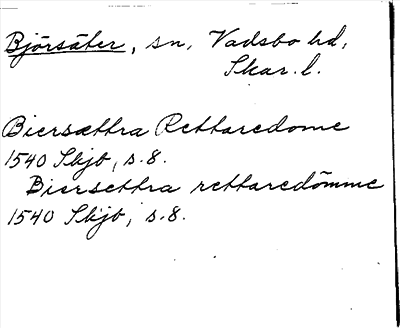 Björsäter, sn, Vadsbo hd,
Skar. l.
Biersættra Rettaredome
1540 Skjb, s. 8.
Biersettra rettaredömme
1540 Skjb, s. 8.